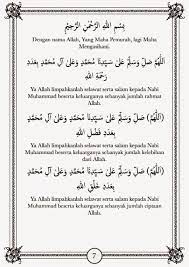 بِسْمِ اللَّهِ الرَّحْمَنِ الرَّحِيْمِ
Dengan nama Allah, Yang Maha Pemurah, lagi Maha
Mengasihani.
(اَللَّهُمَّ صَلِّ وَسَلِّمْ عَلَىٰ سَيِّدِنَا مُحَمَّدٍ وَعَلَىٰ آلِ مُحَمَّدٍ بِعَدَدِ
رَحْمَةِ اللَّهِ)
Ya Allah limpahkanlah selawat serta salam kepada Nabi
Muhammad beserta keluarganya sebanyak jumlah rahmat
Allah.
(اَللَّهُمَّ صَلِّ وَسَلِّمْ عَلَىٰ سَيِّدِنَا مُحَمَّدٍ وَعَلَىٰ آلِ مُحَمَّدٍ
بِعَدَدِ فَضْلِ اللَّهِ)
Ya Allah limpahkanlah selawat serta salam kepada Nabi
Muhammad beserta keluarganya sebanyak jumlah kelebihan
dari Allah.
(اَللَّهُمَّ صَلِّ وَسَلِّمْ عَلَىٰ سَيِّدِنَا مُحَمَّدٍ وَعَلَىٰ آلِ مُحَمَّدٍ
بِعَدَدِ خَلْقِ اللَّهِ)
Ya Allah limpahkanlah selawat serta salam kepada Nabi
Muhammad beserta keluarganya sebanyak jumlah ciptaan
Allah.
7